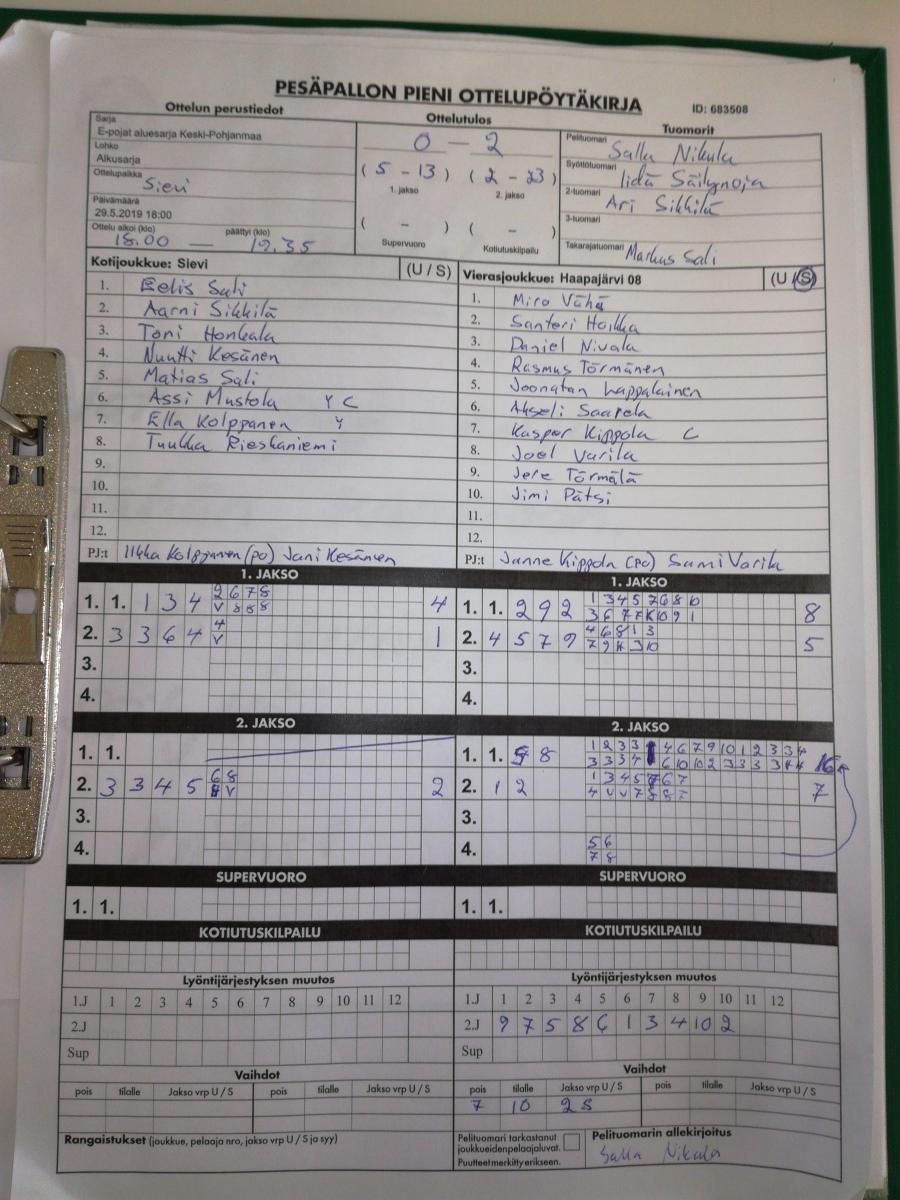 PESÄPALLON PIENI OTTELUPÖYTÄKIRJA
ID: 683508
Ottelun perustiedot
Ottelutulos
Tuomarit
Sarja
E-pojat aluesarja Keski-Pohjanmaa
Lohko
Alkusarja
Ottelupaikka Sievi
Päivämäärä
29.5.2019 18:00
Ottelu alkoi (klo) päättyi (klo)
18.00 — 19.35
0 - 2
(5 - 13) (2 - 23)
1. jakso 2. jakso
( - ) ( - )
Supervuoro Kotiutuskilpailu
Pelituomari Salla Nikula
Syöttötuomari Iida Säilynoja
2-tuomari Ari Sikkilä
3-tuomari
Takarajatuomari Markus Sali
Kotijoukkue: Sievi (U / S)
1. Eelis Sali
2. Aarni Sikkilä
3. Toni Honkala
4. Nuutti Kesänen
5. Matias Sali
6. Assi Mustola Y C
7. Ella Kolppanen Y
8. Tuukka Rieskaniemi
9.
10.
11.
12.
PJ:t Ilkka Kolppanen (PO) Jani Kesänen
Vierasjoukkue: Haapajärvi 08 (U / S)
1. Miro Vähä
2. Santeri Hoikka
3. Daniel Nivala
4. Rasmus Törmänen
5. Joonatan Lappalainen
6. Akseli Saarela
7. Kasper Kippola C
8. Joel Varila
9. Jere Törmälä
10. Jimi Pätsi
11.
12.
PJ:t Janne Kippola (PO) Sami Varila
1. JAKSO
1. 1. 1 3 4 2 6 7 8 4
V 8 8 8
2. 3 3 6 4 4 1
V
3.
4.
1. JAKSO
1. 1. 2 9 2 1 3 4 5 7 6 8 10 8
3 6 7 7 K 10 9 1
2. 4 5 7 9 4 6 8 1 3 5
7 9 K 3 10
3.
4.
2. JAKSO
1. 1.
2. 3 3 4 5 6 8 2
V
3.
4.
2. JAKSO
1. 1. 8 1 2 3 3 4 6 7 9 10 1 2 3 3 4 16
3 3 3 4 6 10 10 2 3 3 3 3 4 4
2. 1 2 1 3 4 5 6 7 7
4 V V 7 8 8 7
3.
4. 5 6
7 8
SUPERVUORO
1. 1.
SUPERVUORO
1. 1.
KOTIUTUSKILPAILU
KOTIUTUSKILPAILU
Lyöntijärjestyksen muutos
1.J 1 2 3 4 5 6 7 8 9 10 11 12
2.J
Sup
Lyöntijärjestyksen muutos
1.J 1 2 3 4 5 6 7 8 9 10 11 12
2.J 9 7 5 8 6 1 3 4 10 2
Sup
Vaihdot
pois tilalle Jakso vrp U / S pois tilalle Jakso vrp U / S
Vaihdot
pois tilalle Jakso vrp U / S pois tilalle Jakso vrp U / S
7 10 2S
Rangaistukset (joukkue, pelaaja nro, jakso vrp U / S ja syy)
Pelituomari tarkastanut
joukkueidenpelaajaluvat.
Puutteet merkitty erikseen.
Pelituomarin allekirjoitus
Salla Nikula